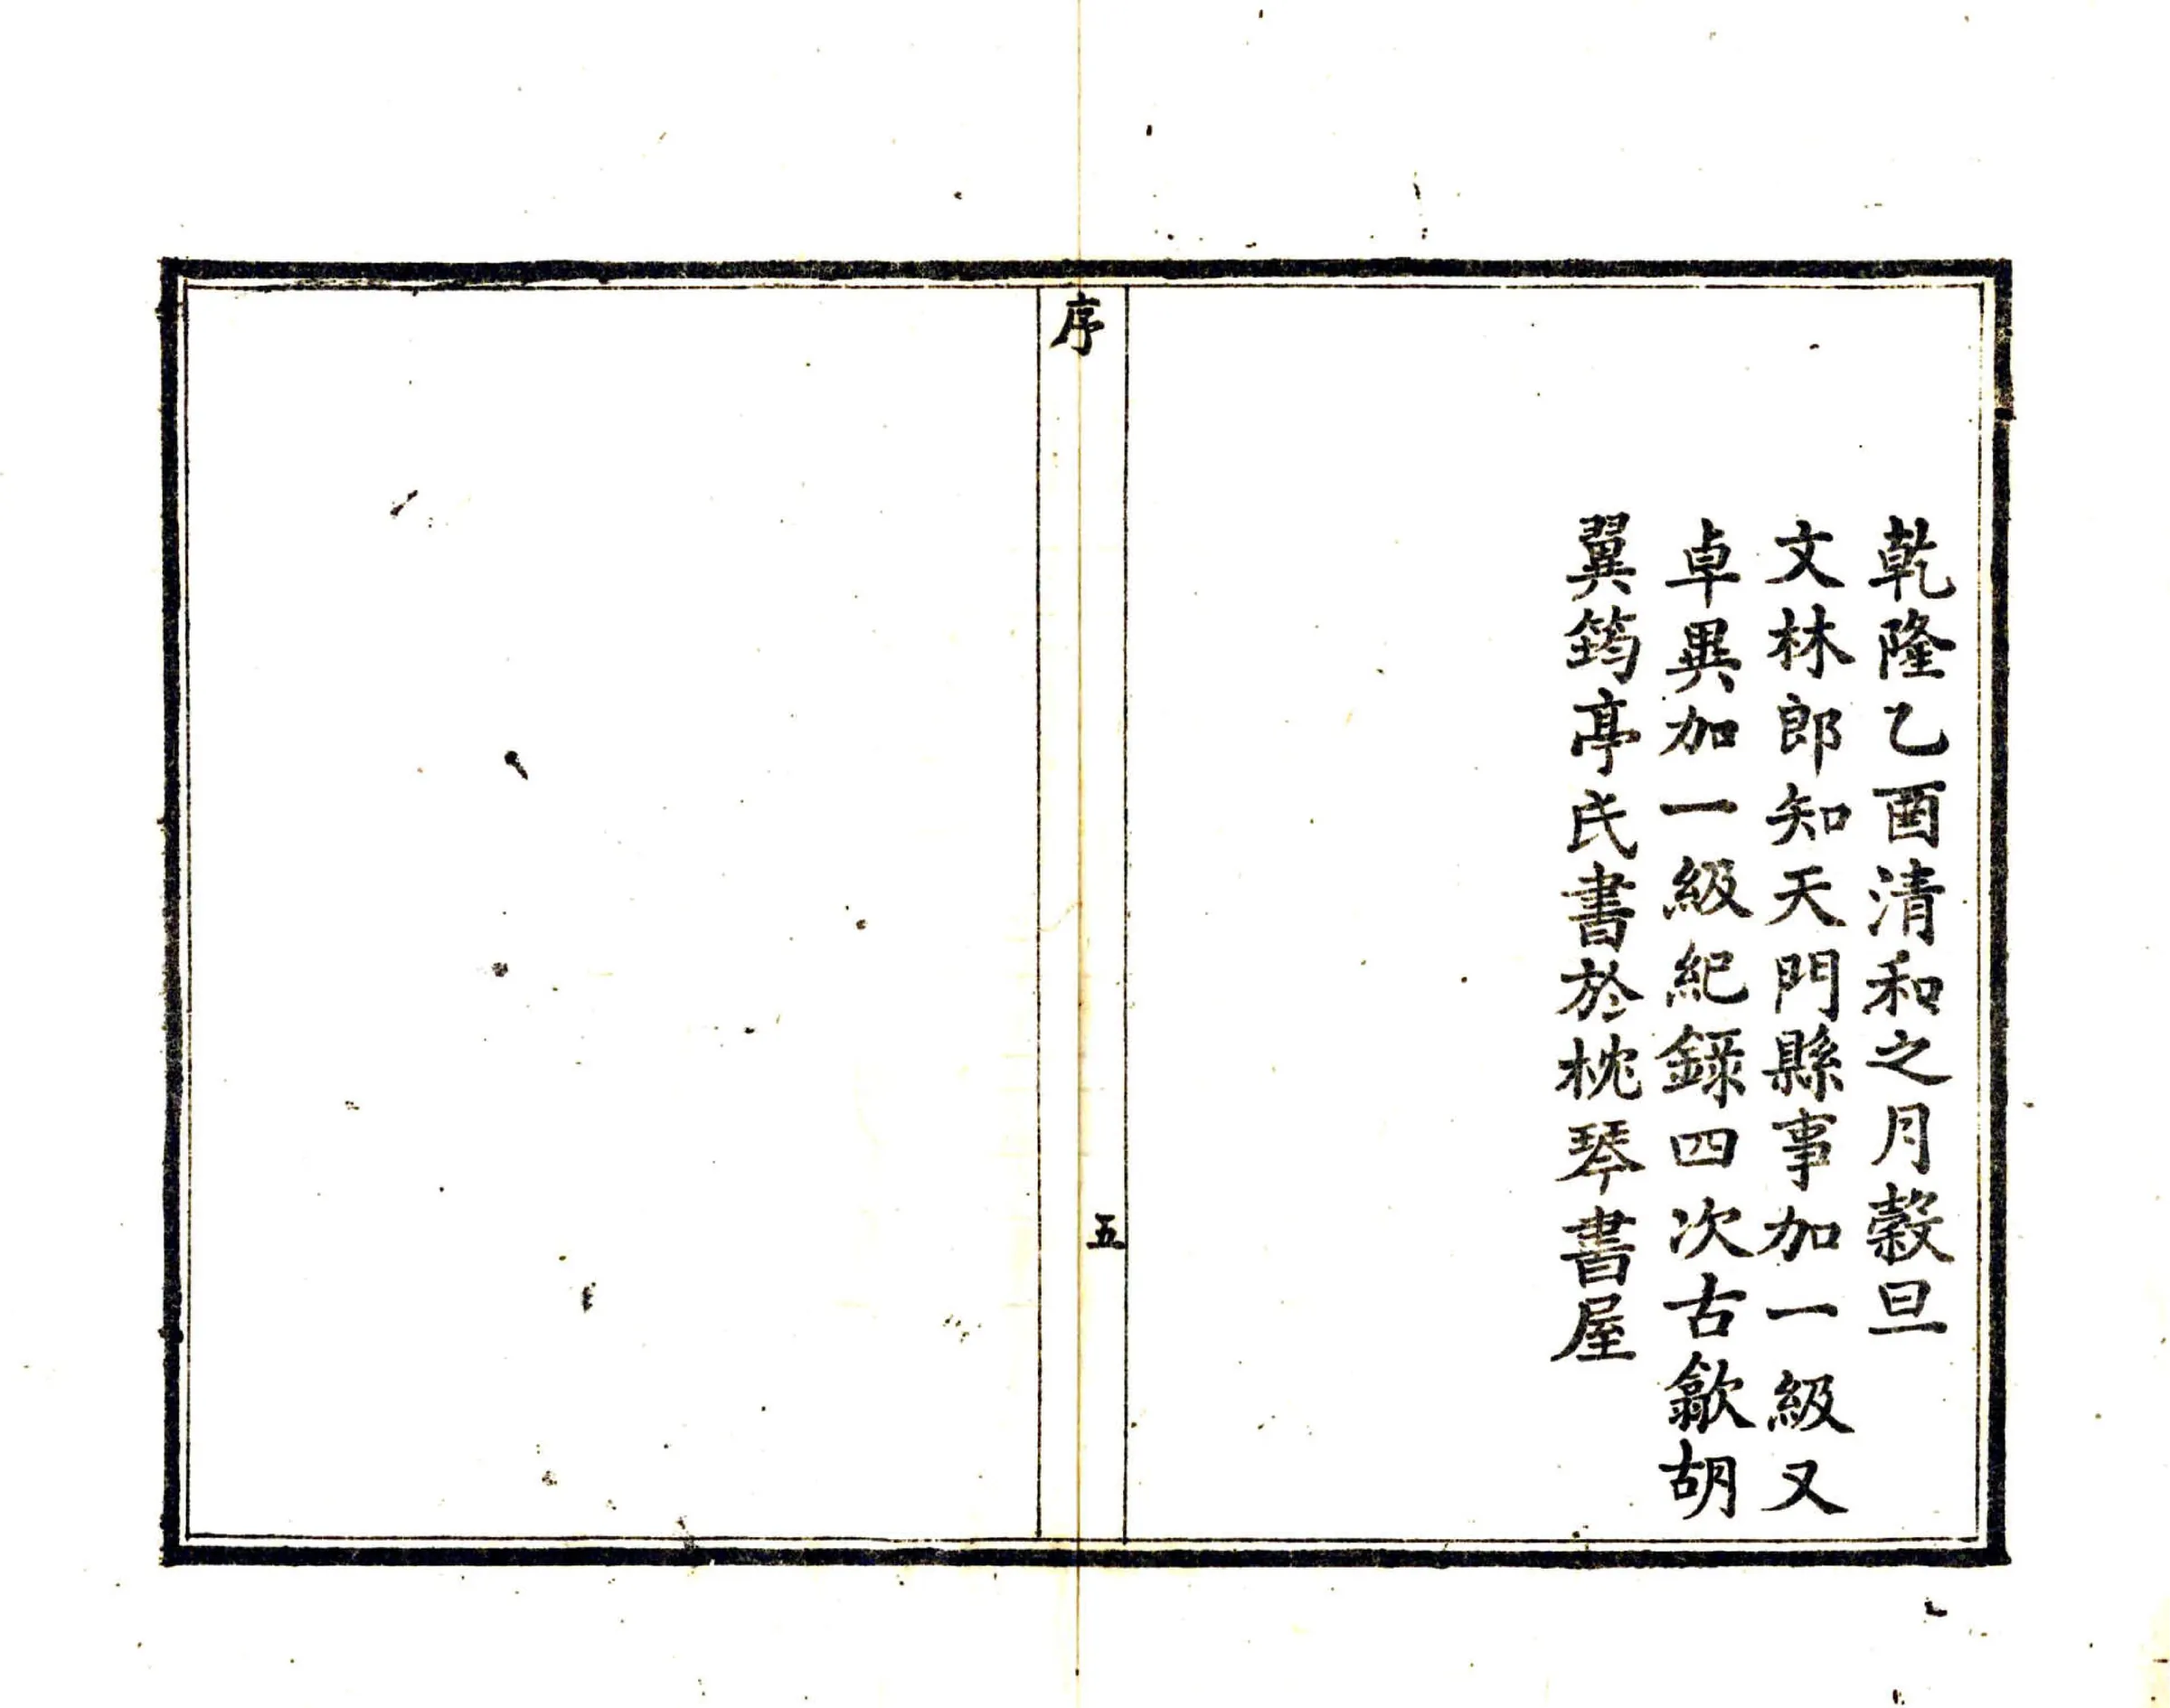 乾隆乙酉清和之月穀旦
文林郎知天門縣事加一級又
卓異加一級紀錄四次古歙胡
翼筠亭氏書於枕琴書屋
序
五